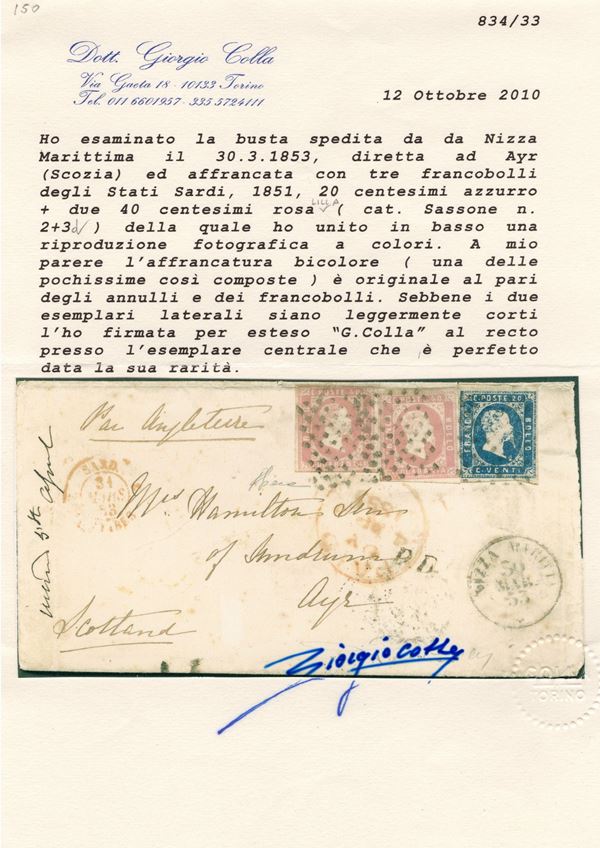 150
834/33
Dott. Giorgio Colla
Via Gaeta 18 - 10133 Torino
Tel. 011 6601957 - 335 5724111
12 Ottobre 2010
Ho esaminato la busta spedita da da Nizza
Marittima il 30.3.1853, diretta ad Ayr
(Scozia) ed affrancata con tre francobolli
degli Stati Sardi, 1851, 20 centesimi azzurro
LILLA
+ due 40 centesimi rosa ( cat. Sassone n.
2+3d ) della quale ho unito in basso una
riproduzione fotografica a colori. A mio
parere l'affrancatura bicolore ( una delle
pochissime così composte ) è originale al pari
degli annulli e dei francobolli. Sebbene i due
esemplari laterali siano leggermente corti
l'ho firmata per esteso "G.Colla" al recto
presso l'esemplare centrale che è perfetto
data la sua rarità.
C. POSTE 20
FRANCO
BOLLO
C. VENTI
Par Angleterre
SARD.
Mrs Hamilton
of Sundrum
P.D.
Ayr
Scotland
NIZZA MARITT.
30
MAR.
53
5th April
Giorgio Colla
COLLA
TORINO